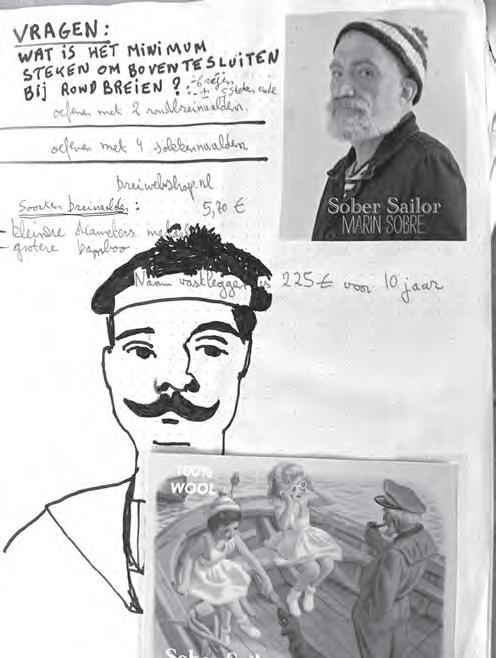 VRAGEN:
WAT IS HET MINIMUM
STEKEN OM BOVEN TE SLUITEN
BIJ ROND BREIEN?
oefenen met 2 rondbreinaalden.
oefenen met 4 sokkennaalden
breiwebshop.nl
Soorten breinaalden: 5,70 €
- kleindre diameters
- grotere bamboo
Naam vastleggen is 225 € voor 10 jaar
Sober Sailor
MARIN SOBRE
100%
WOOL